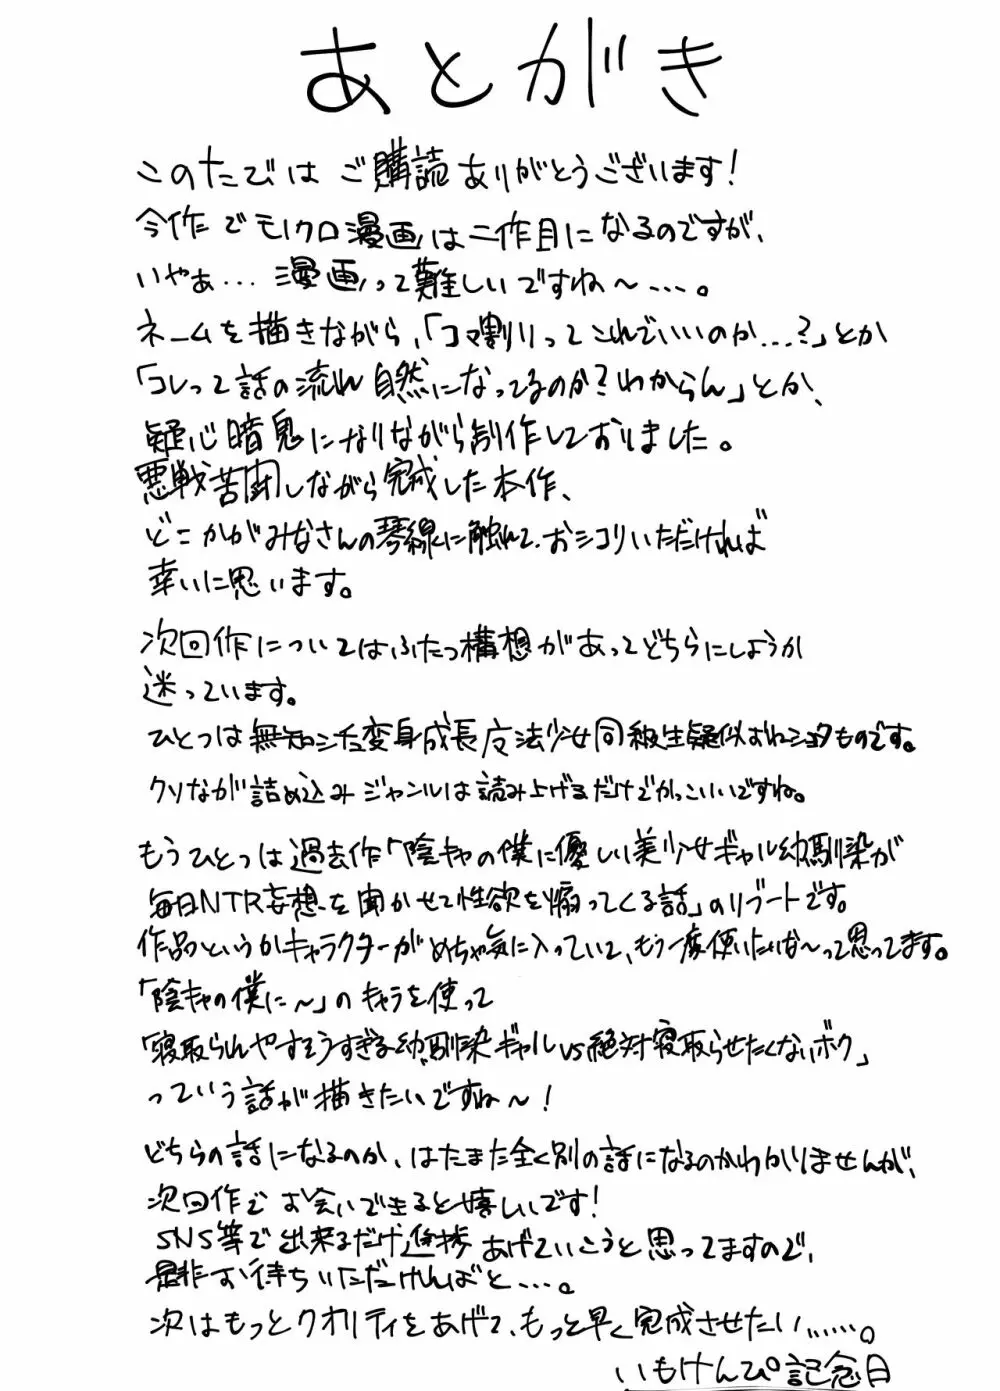 あとがき
このたびは ご購読ありがとうございます!
今作でモノクロ漫画は二作目になるのですが、
いやぁ... 漫画って難しいですね〜....。
ネームを描きながら、「コマ割りってこれでいいのか...?」とか
「コレって話の流れ自然になってるのか?わからん」とか、
疑心暗鬼になりながら制作しておりました。
悪戦苦闘しながら完成した本作、
どこかがみなさんの琴線に触れて、おシコリいただければ
幸いに思います。
次回作についてはふたつ構想があってどちらにしようか
迷っています。
ひとつは無知シチュ変身成長魔法少女同級生疑似おねショタものです。
クソなが詰め込みジャンルは読み上げるだけでかっこいいですね。
もうひとつは過去作「陰キャの僕に優しい美少女ギャル幼馴染が
毎日NTR妄想を聞かせて性欲を煽ってくる話」のリブートです。
作品というかキャラクターがめちゃ気に入っていて、もう一度使いたいな〜って思ってます。
「陰キャの僕に〜」のキャラを使って
「寝取られんやすそうすぎる幼馴染ギャルvs絶対寝取らせたくないボク」
っていう話が描きたいですね〜!
どちらの話になるのか、はたまた全く別の話になるのかわかりませんが、
次回作でお会いできると嬉しいです!
SNS等で出来るだけ進捗あげていこうと思ってますので、
是非お待ちいただければと....。
次はもっとクオリティをあげて、もっと早く完成させたい......。
いもけんぴ記念日